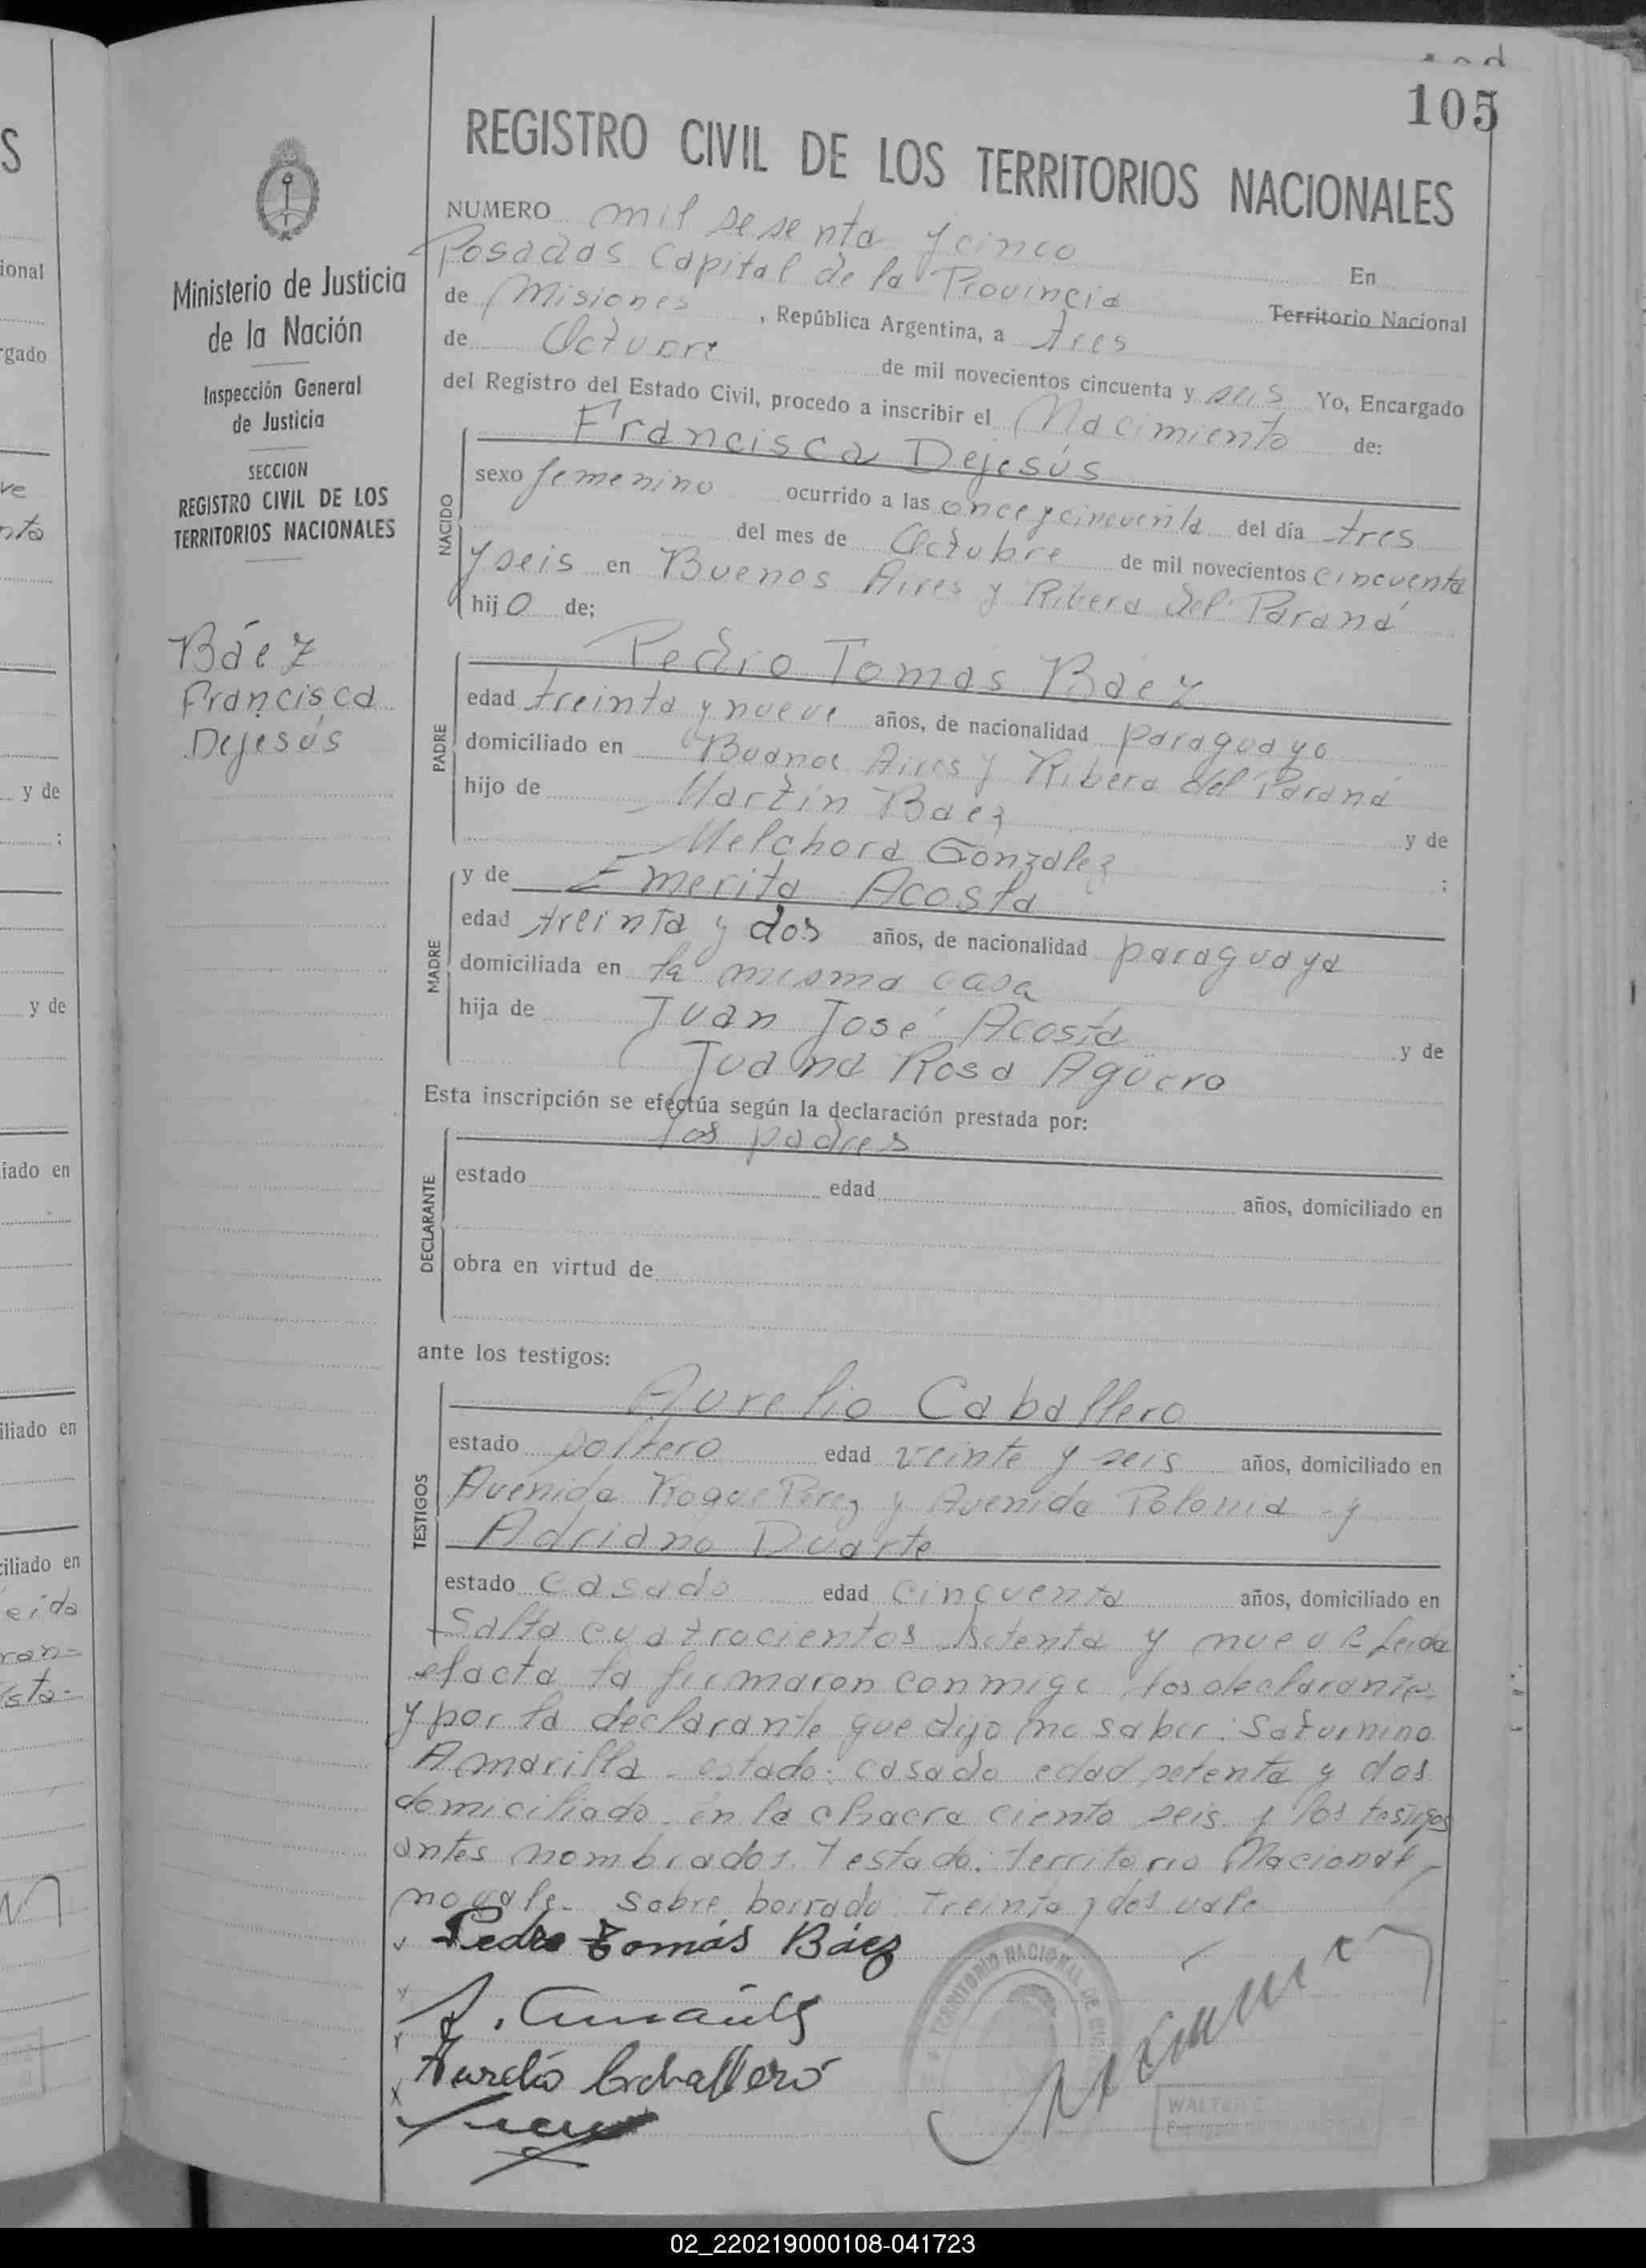 105
REGISTRO CIVIL DE LOS TERRITORIOS NACIONALES
Ministerio de Justicia
de la Nación
Inspección General
de Justicia
SECCION
REGISTRO CIVIL DE LOS
TERRITORIOS NACIONALES
Báez
Francisca
Dejesús
NUMERO mil sesenta y cinco En
Posadas Capital de la Provincia Territorio Nacional
de Misiones, República Argentina, a tres
de Octubre de mil novecientos cincuenta y seis Yo, Encargado
del Registro del Estado Civil, procedo a inscribir el Nacimiento de:
Francisca Dejesús
NACIDO
sexo femenino ocurrido a las once y cincuenta del día tres
del mes de Octubre de mil novecientos cincuenta
y seis en Buenos Aires y Ribera del Paraná
hijo de;
Pedro Tomás Báez
PADRE
edad treinta y nueve años, de nacionalidad paraguayo
domiciliado en Buenos Aires y Ribera del Paraná
hijo de Martín Baez y de
Melchora Gonzalez ;
y de Emerita Acosta
MADRE
edad treinta y dos años, de nacionalidad paraguaya
domiciliada en la misma casa
hija de Juan José Acosta y de
Juana Rosa Agüero
Esta inscripción se efectúa según la declaración prestada por:
los padres
DECLARANTE
estado edad años, domiciliado en
obra en virtud de
ante los testigos:
Aurelio Caballero
TESTIGOS
estado soltero edad veinte y seis años, domiciliado en
Avenida Roque Perez y Avenida Polonia y
Adriano Duarte
estado casado edad cincuenta años, domiciliado en
Salta cuatrocientos setenta y nueve Leida
el acta la firmaron conmigo los declarantes
y por la declarante que dijo no saber: Saturnino
Amarilla - estado: casado edad setenta y dos
domiciliado en la chacra ciento seis y los testigos
antes nombrados. Testado: Territorio Nacional -
no vale. Sobre borrado: treinta y dos vale
Pedro Tomás Báez
Aurelio Caballero
TERRITORIO NACIONAL DE
WALTER
02_220219000108-041723